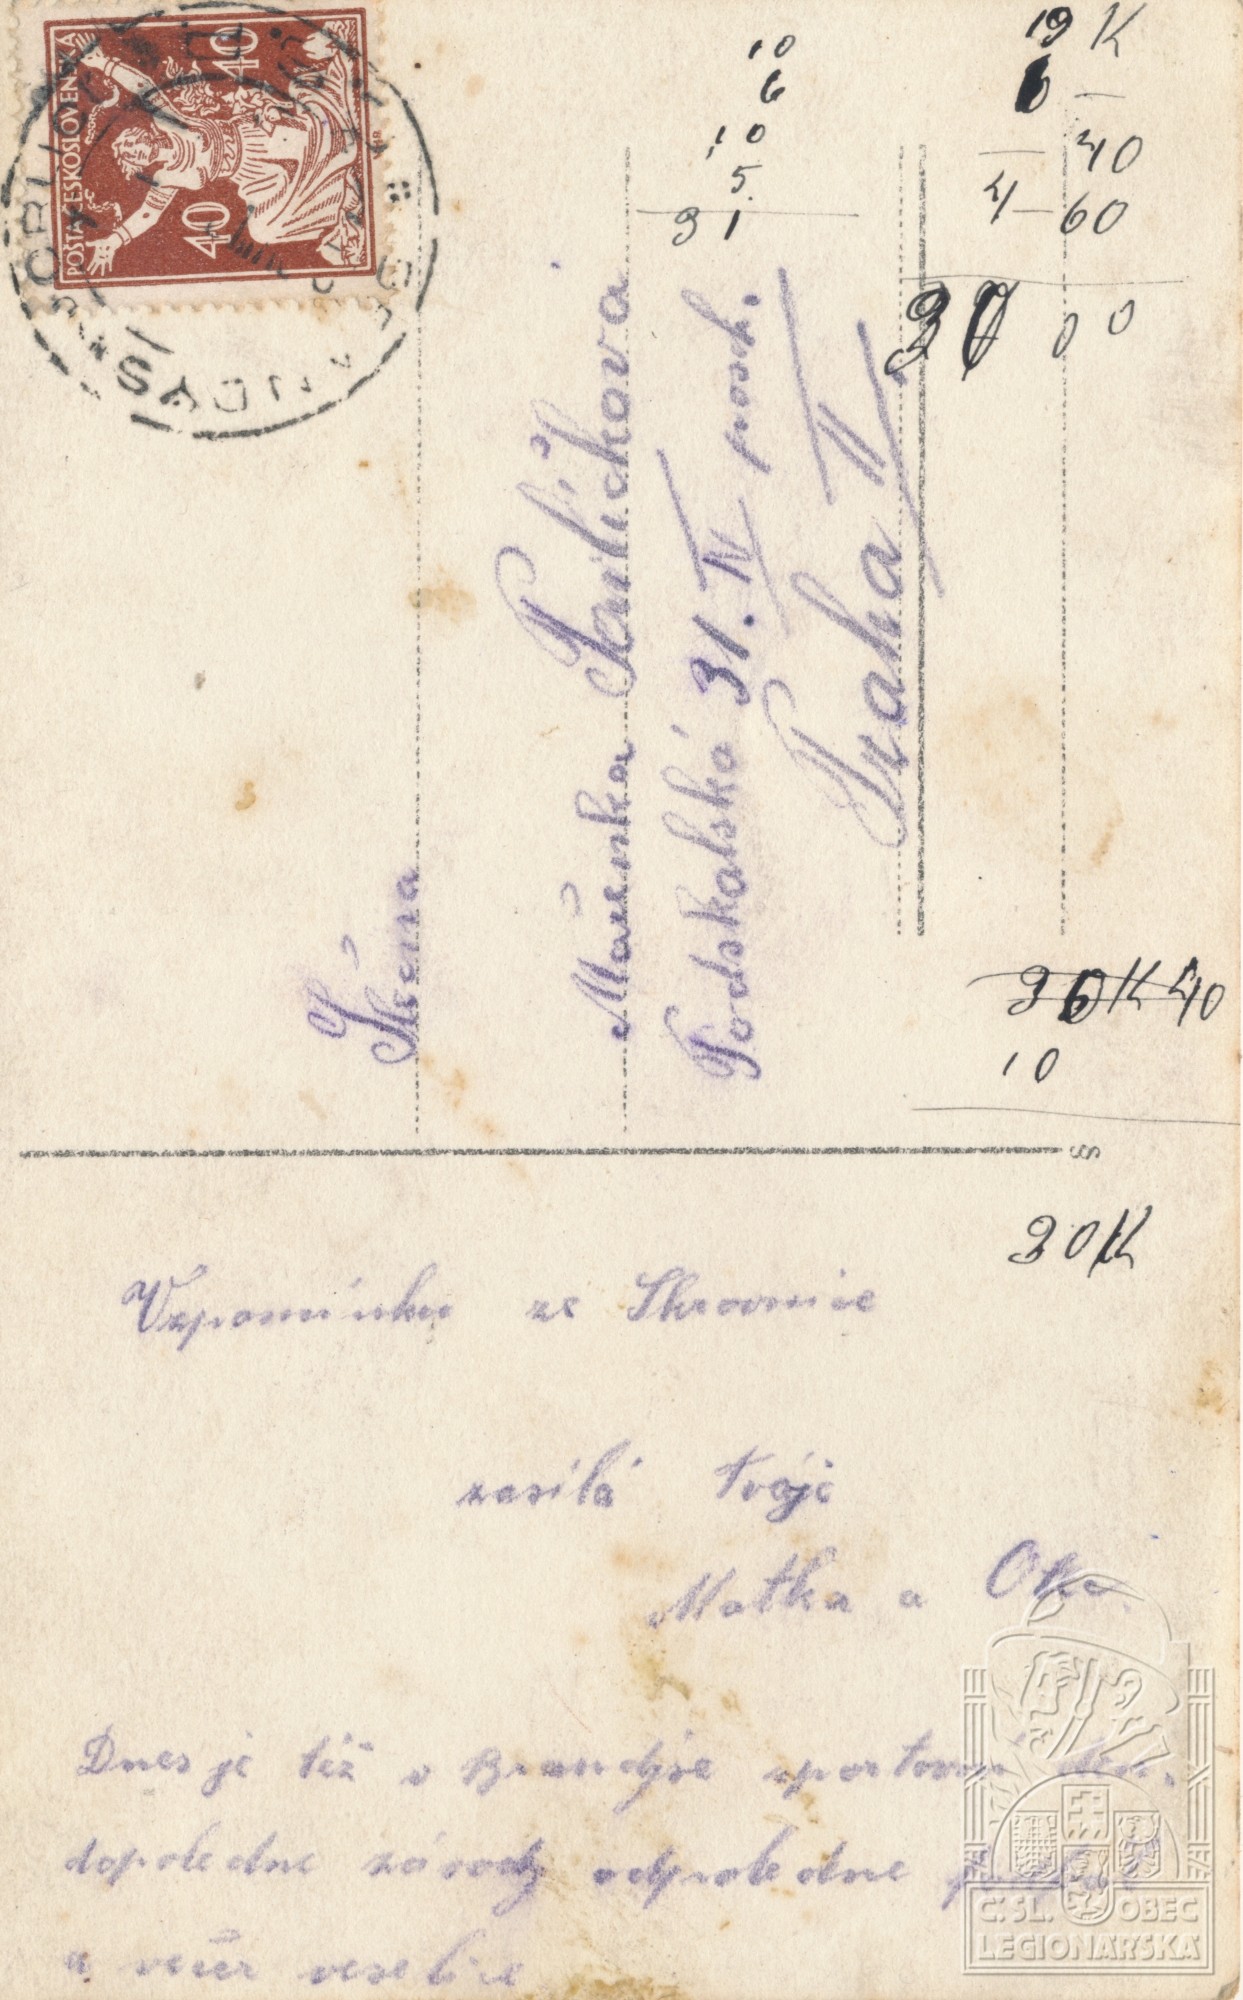 POŠTA ČESKOSLOVENSKÁ
40 40
10
6
10
5.
31
19 K
6 —
— 40
4 — 60
30 00
36 K 40
10
30 K
Slečna
Mařenka Pavlíčkova
Podskalská 31. IV posch.
Praha II.
Vzpomínku ze Skrovnice
zasílá tvoje
Matka a Oka.
Dnes je též v Brandýse sportovní den,
dopoledne závody odpoledne
a večer veselice
Č. SL. OBEC
LEGIONÁŘSKÁ